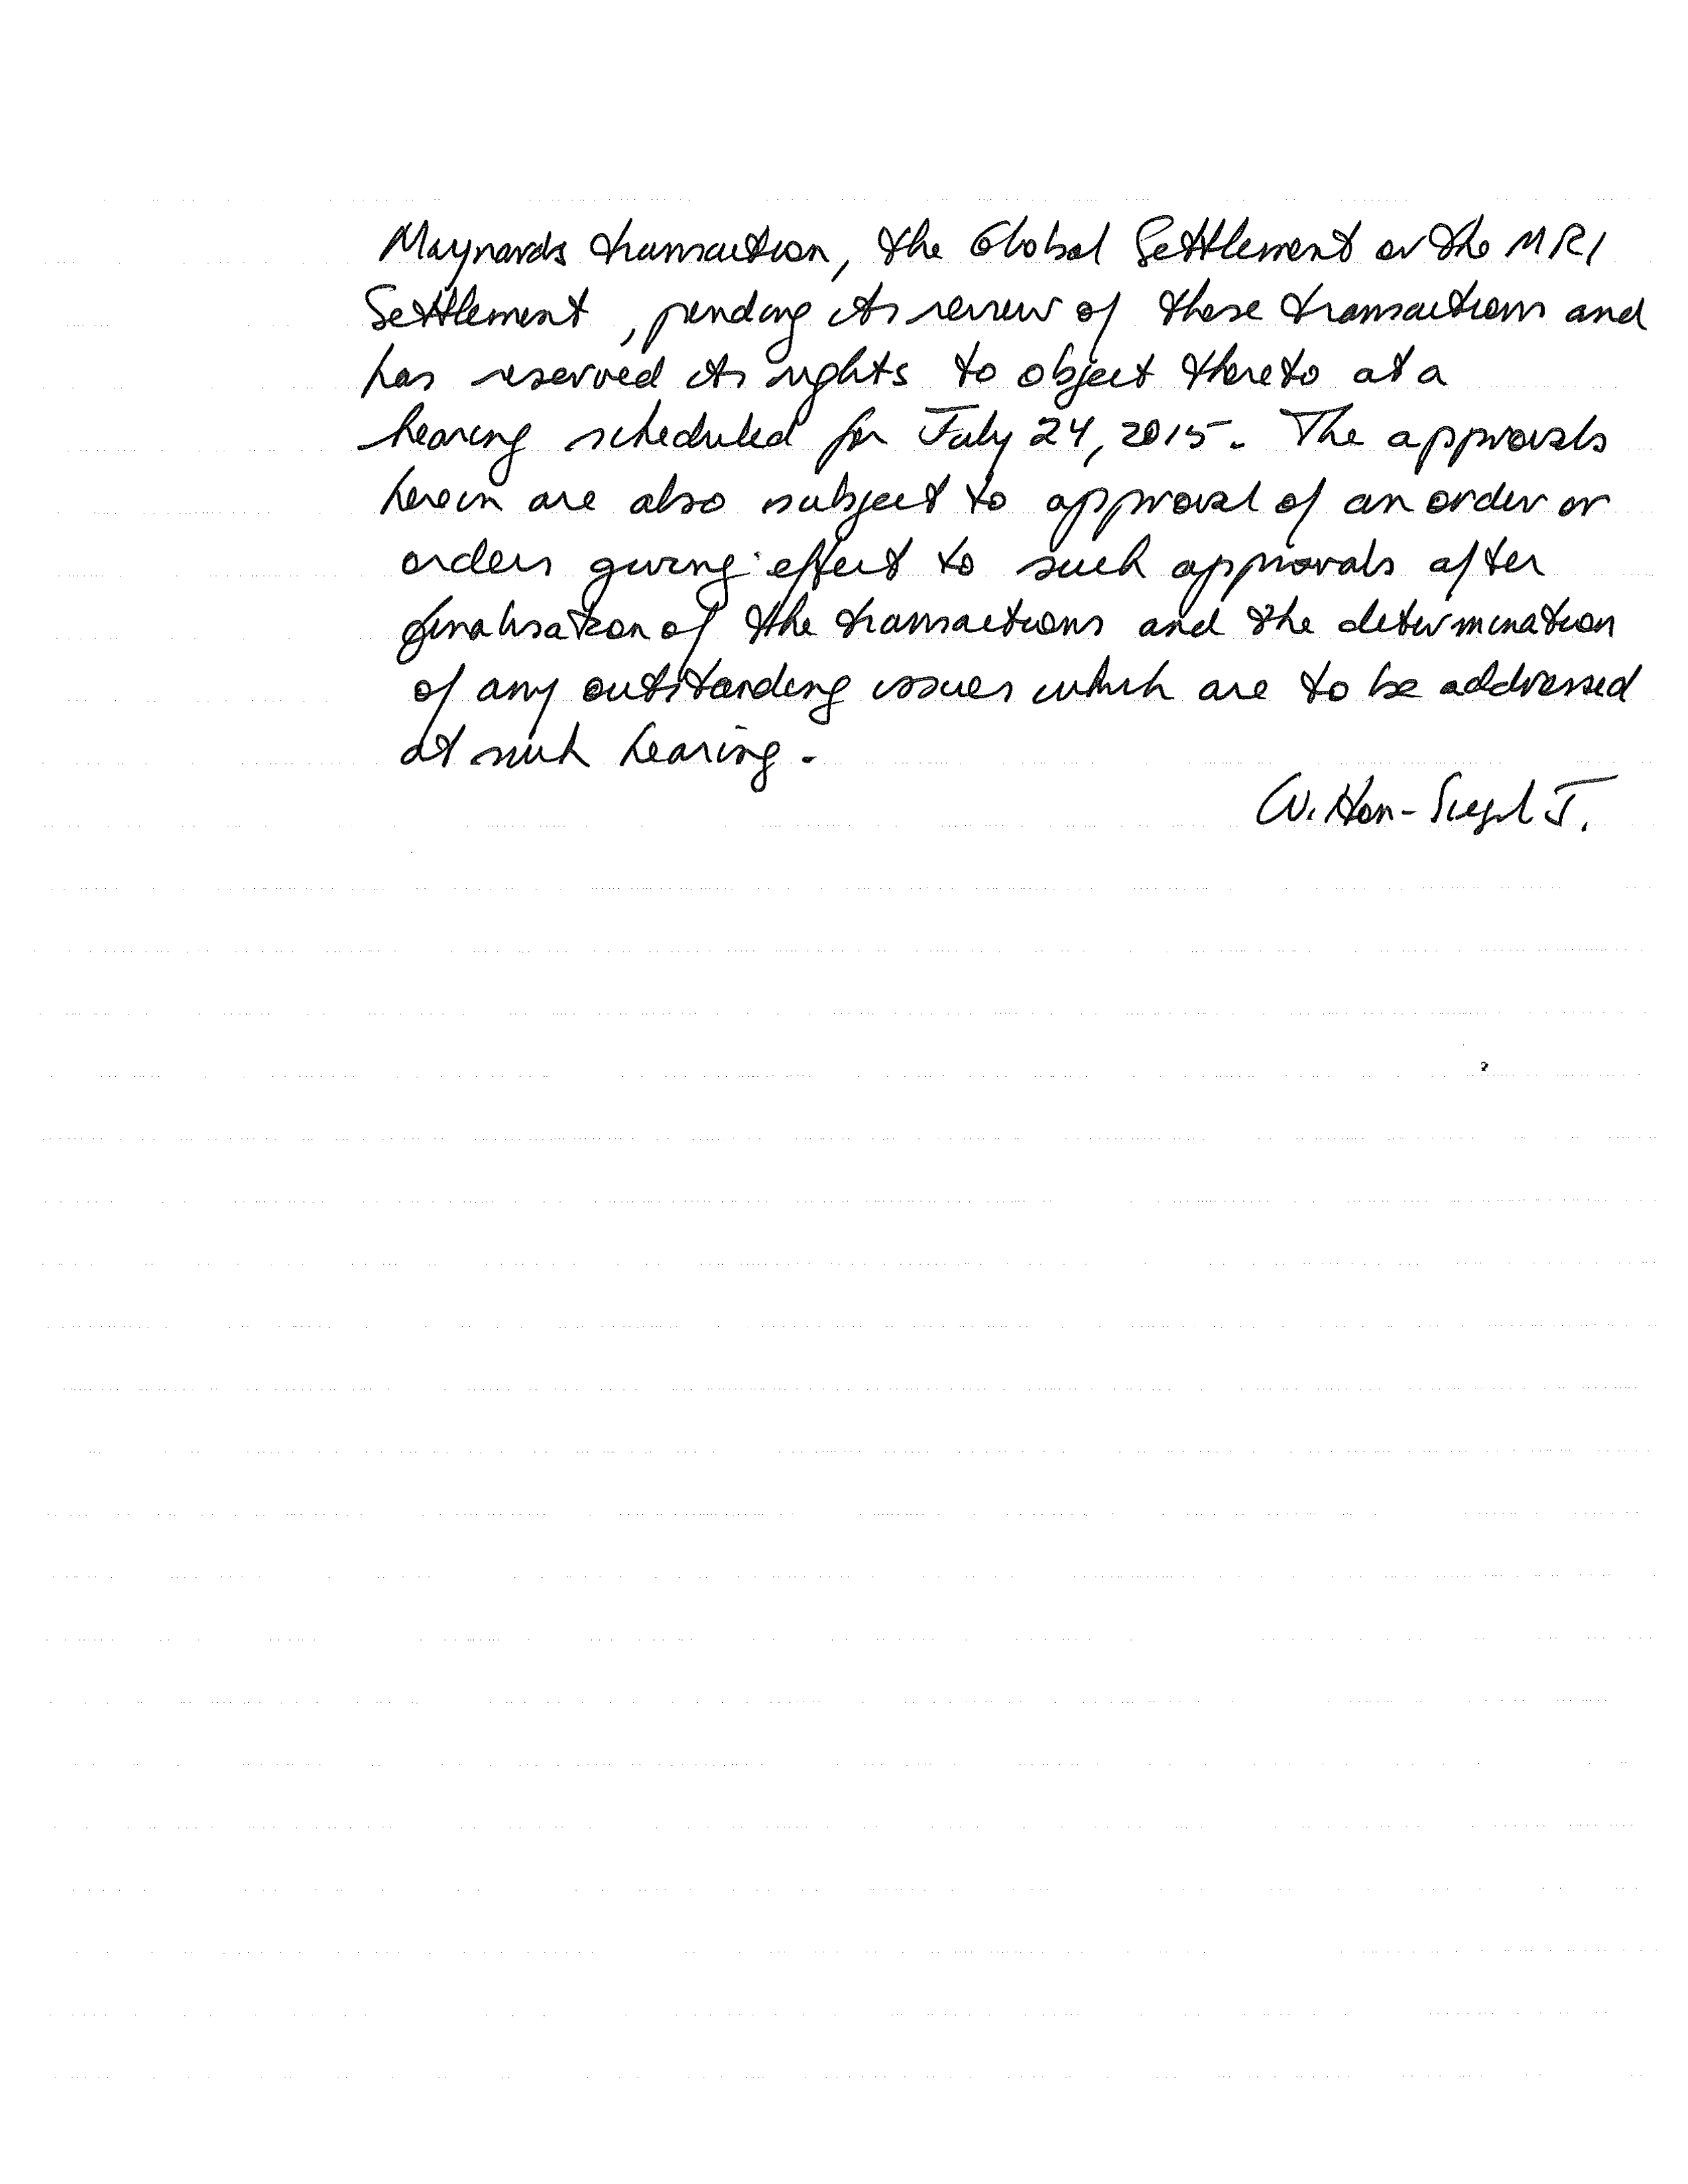 Maynards transaction, the Global Settlement or the MRI
Settlement, pending its review of these transactions and
has reserved its rights to object thereto at a
hearing scheduled for July 24, 2015. The approvals
herein are also subject to approval of an order or
orders giving effect to such approvals after
finalisation of the transactions and the determination
of any outstanding issues which are to be addressed
at such hearing.
Wilton-Siegel J.